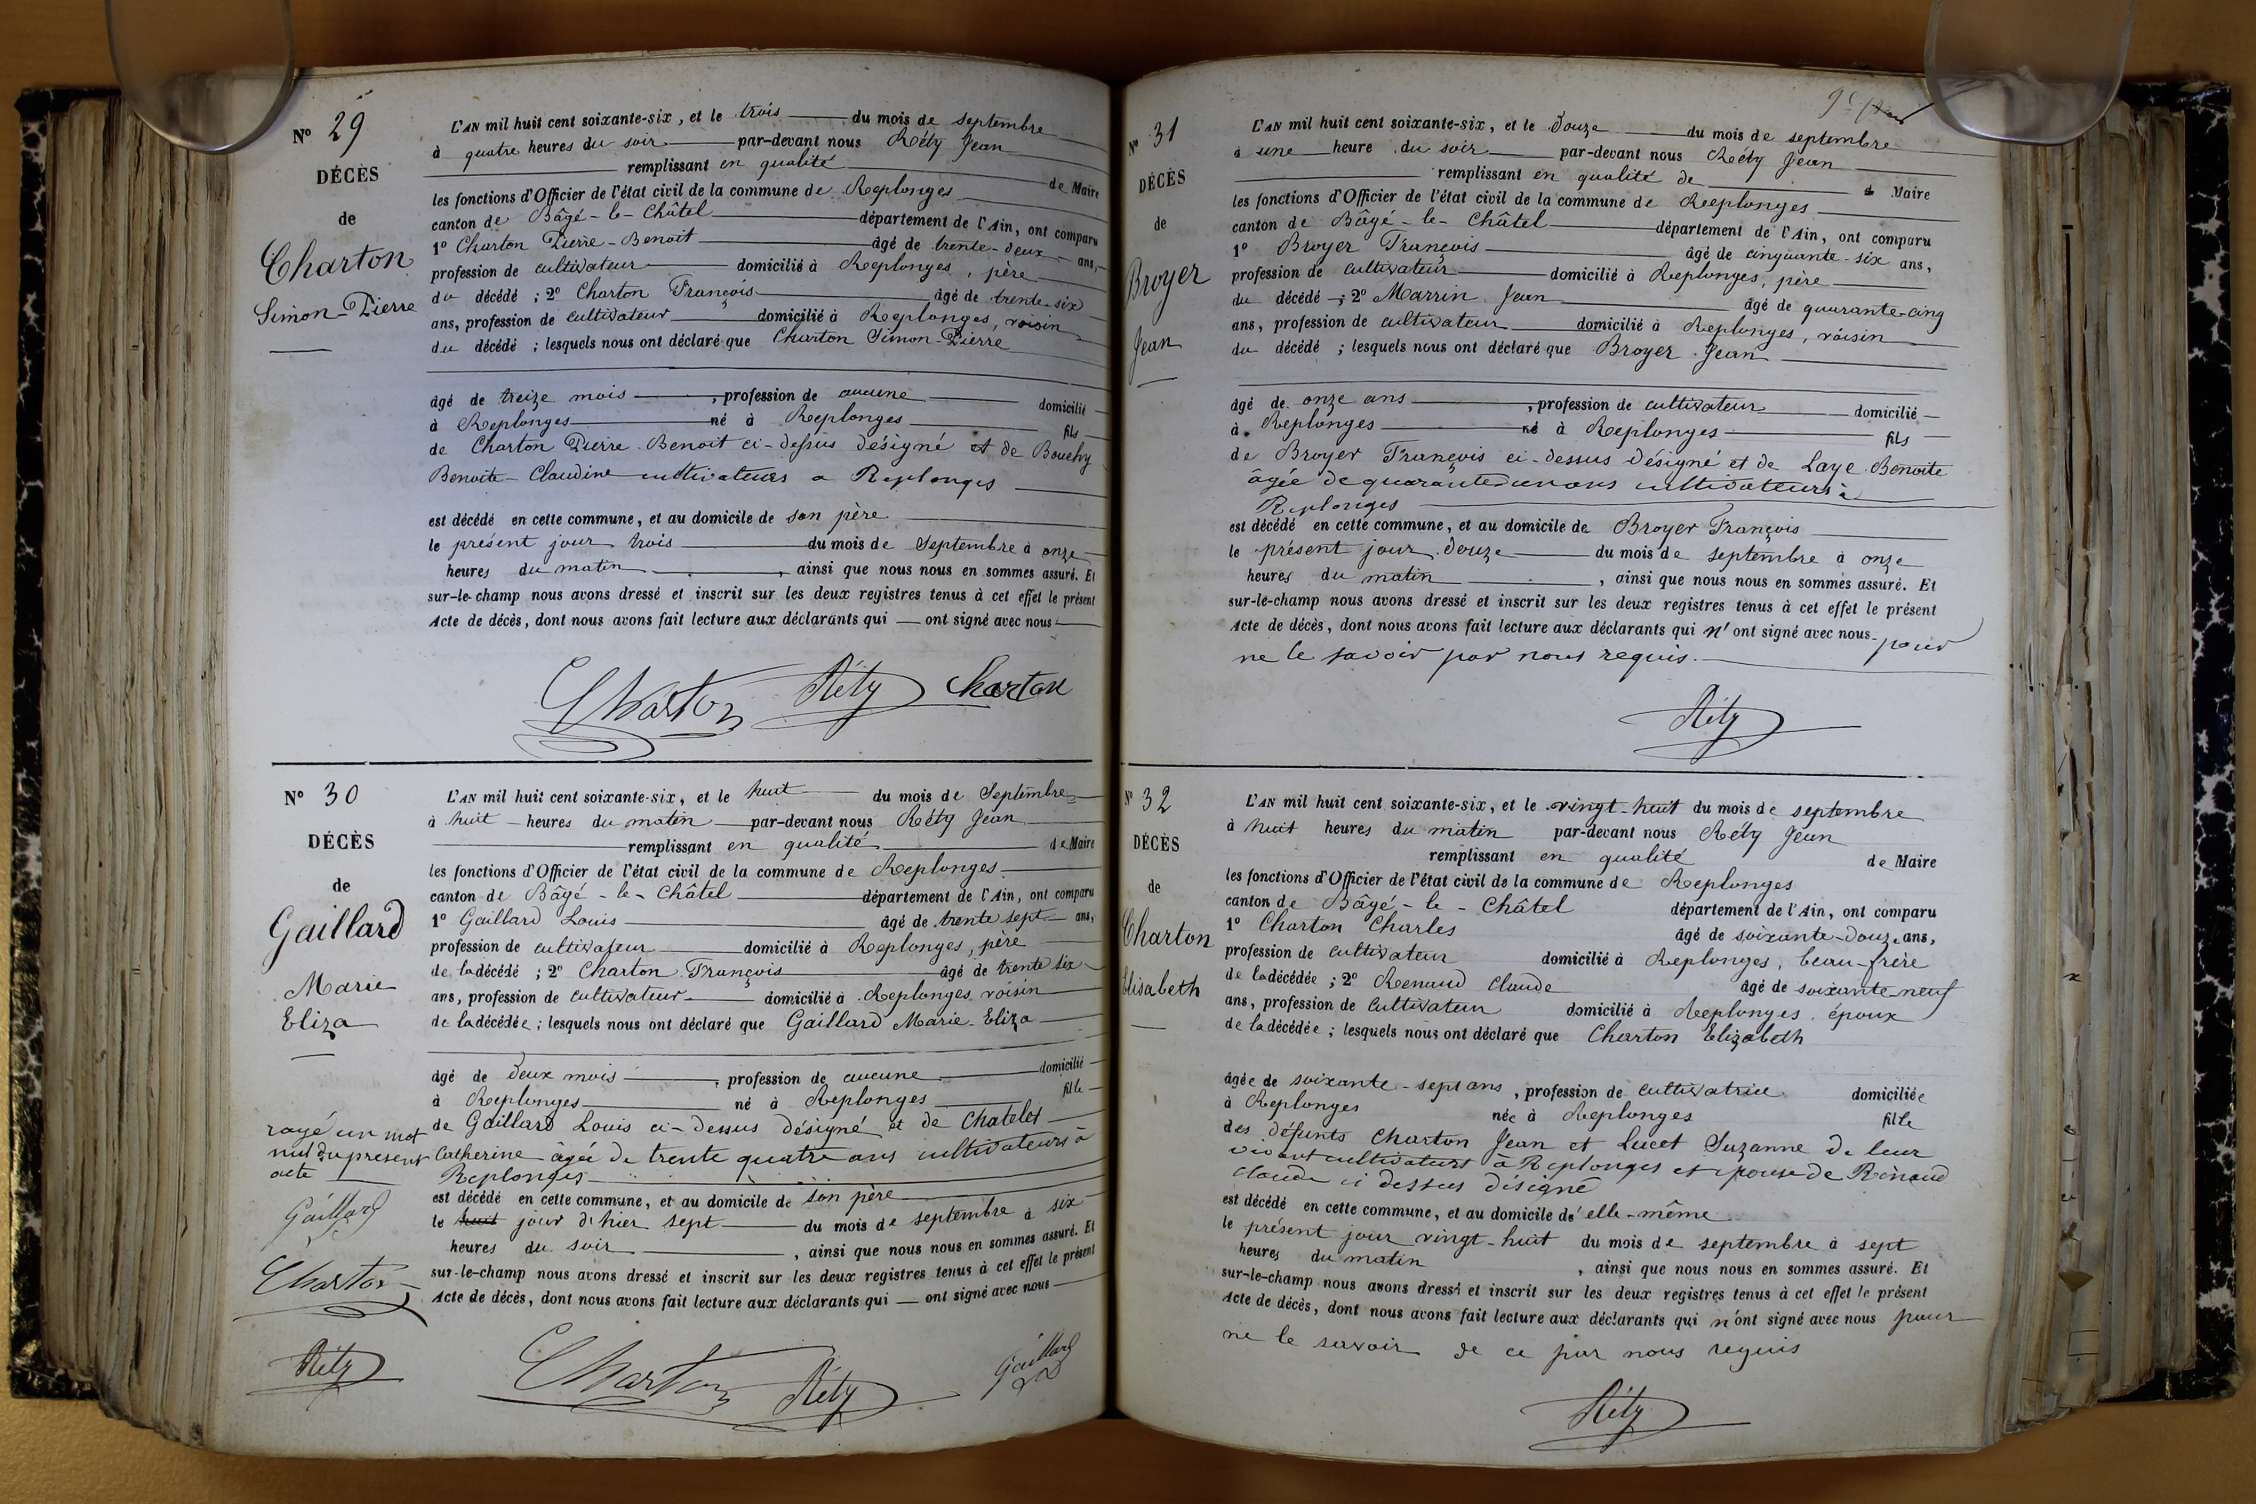 N° 29
DÉCÈS
de
Charton
Simon-Pierre
L'AN mil huit cent soixante-six, et le trois du mois de septembre
à quatre heures du soir par-devant nous Réty Jean
remplissant en qualité de Maire
les fonctions d'Officier de l'état civil de la commune de Replonges
canton de Bâgé-le-Châtel département de l'Ain, ont comparu
1° Charton Pierre-Benoit âgé de trente-deux ans,
profession de cultivateur domicilié à Replonges, père
du décédé ; 2° Charton François âgé de trente-six
ans, profession de cultivateur domicilié à Replonges, voisin
du décédé ; lesquels nous ont déclaré que Charton Simon-Pierre
âgé de treize mois, profession de aucune domicilié
à Replonges né à Replonges fils
de Charton Pierre Benoit ci-dessus désigné et de Bouchy
Benoite-Claudine cultivateurs a Replonges
est décédé en cette commune, et au domicile de son père
le présent jour trois du mois de Septembre à onze
heures du matin, ainsi que nous nous en sommes assuré. Et
sur-le-champ nous avons dressé et inscrit sur les deux registres tenus à cet effet le présent
Acte de décès, dont nous avons fait lecture aux déclarants qui ont signé avec nous
Charton Réty Charton
N° 30
DÉCÈS
de
Gaillard
Marie
Eliza
L'AN mil huit cent soixante-six, et le huit du mois de Septembre
à huit heures du matin par-devant nous Réty Jean
remplissant en qualité de Maire
les fonctions d'Officier de l'état civil de la commune de Replonges
canton de Bâgé-le-Châtel département de l'Ain, ont comparu
1° Gaillard Louis âgé de trente sept ans,
profession de cultivateur domicilié à Replonges, père
de la décédé ; 2° Charton François âgé de trente six
ans, profession de cultivateur domicilié à Replonges voisin
de la décédée ; lesquels nous ont déclaré que Gaillard Marie-Eliza
âgé de deux mois, profession de aucune domicilié
à Replonges né à Replonges fille
de Gaillard Louis ci-dessus désigné et de Chatelet
Catherine âgée de trente quatre ans cultivateurs à
Replonges
est décédé en cette commune, et au domicile de son père
le huit jour d'hier sept du mois de septembre à six
heures du soir, ainsi que nous nous en sommes assuré. Et
sur-le-champ nous avons dressé et inscrit sur les deux registres tenus à cet effet le présent
Acte de décès, dont nous avons fait lecture aux déclarants qui ont signé avec nous
rayé un mot
nul du present
acte
Gaillard
Charton
Réty
Charton Réty Gaillard
N° 31
DÉCÈS
de
Broyer
Jean
L'AN mil huit cent soixante-six, et le douze du mois de septembre
à une heure du soir par-devant nous Réty Jean
remplissant en qualité de Maire
les fonctions d'Officier de l'état civil de la commune de Replonges
canton de Bâgé-le-Châtel département de l'Ain, ont comparu
1° Broyer François âgé de cinquante-six ans,
profession de cultivateur domicilié à Replonges, père
du décédé ; 2° Marrin Jean âgé de quarante-cinq
ans, profession de cultivateur domicilié à Replonges, voisin
du décédé ; lesquels nous ont déclaré que Broyer Jean
âgé de onze ans, profession de cultivateur domicilié
à Replonges né à Replonges fils
de Broyer François ci-dessus désigné et de Laye Benoite
âgée de quarante un ans cultivateurs à
Replonges
est décédé en cette commune, et au domicile de Broyer François
le présent jour douze du mois de septembre à onze
heures du matin, ainsi que nous nous en sommes assuré. Et
sur-le-champ nous avons dressé et inscrit sur les deux registres tenus à cet effet le présent
Acte de décès, dont nous avons fait lecture aux déclarants qui n'ont signé avec nous pour
ne le savoir par nous requis.
Réty
N° 32
DÉCÈS
de
Charton
Elisabeth
L'AN mil huit cent soixante-six, et le vingt-huit du mois de septembre
à huit heures du matin par-devant nous Réty Jean
remplissant en qualité de Maire
les fonctions d'Officier de l'état civil de la commune de Replonges
canton de Bâgé-le-Châtel département de l'Ain, ont comparu
1° Charton Charles âgé de soixante-douze ans,
profession de cultivateur domicilié à Replonges, beau-frère
de la décédée ; 2° Renaud Claude âgé de soixante neuf
ans, profession de cultivateur domicilié à Replonges, époux
de la décédée ; lesquels nous ont déclaré que Charton Elizabeth
âgée de soixante-sept ans, profession de cultivatrice domiciliée
à Replonges née à Replonges fille
des défunts Charton Jean et Lucet Suzanne de leur
vivant cultivateurs à Replonges et epouse de Renaud
claude ci dessus désigné
est décédé en cette commune, et au domicile d'elle-même
le présent jour vingt-huit du mois de septembre à sept
heures du matin, ainsi que nous nous en sommes assuré. Et
sur-le-champ nous avons dressé et inscrit sur les deux registres tenus à cet effet le présent
Acte de décès, dont nous avons fait lecture aux déclarants qui n'ont signé avec nous pour
ne le savoir de ce par nous requis
Réty